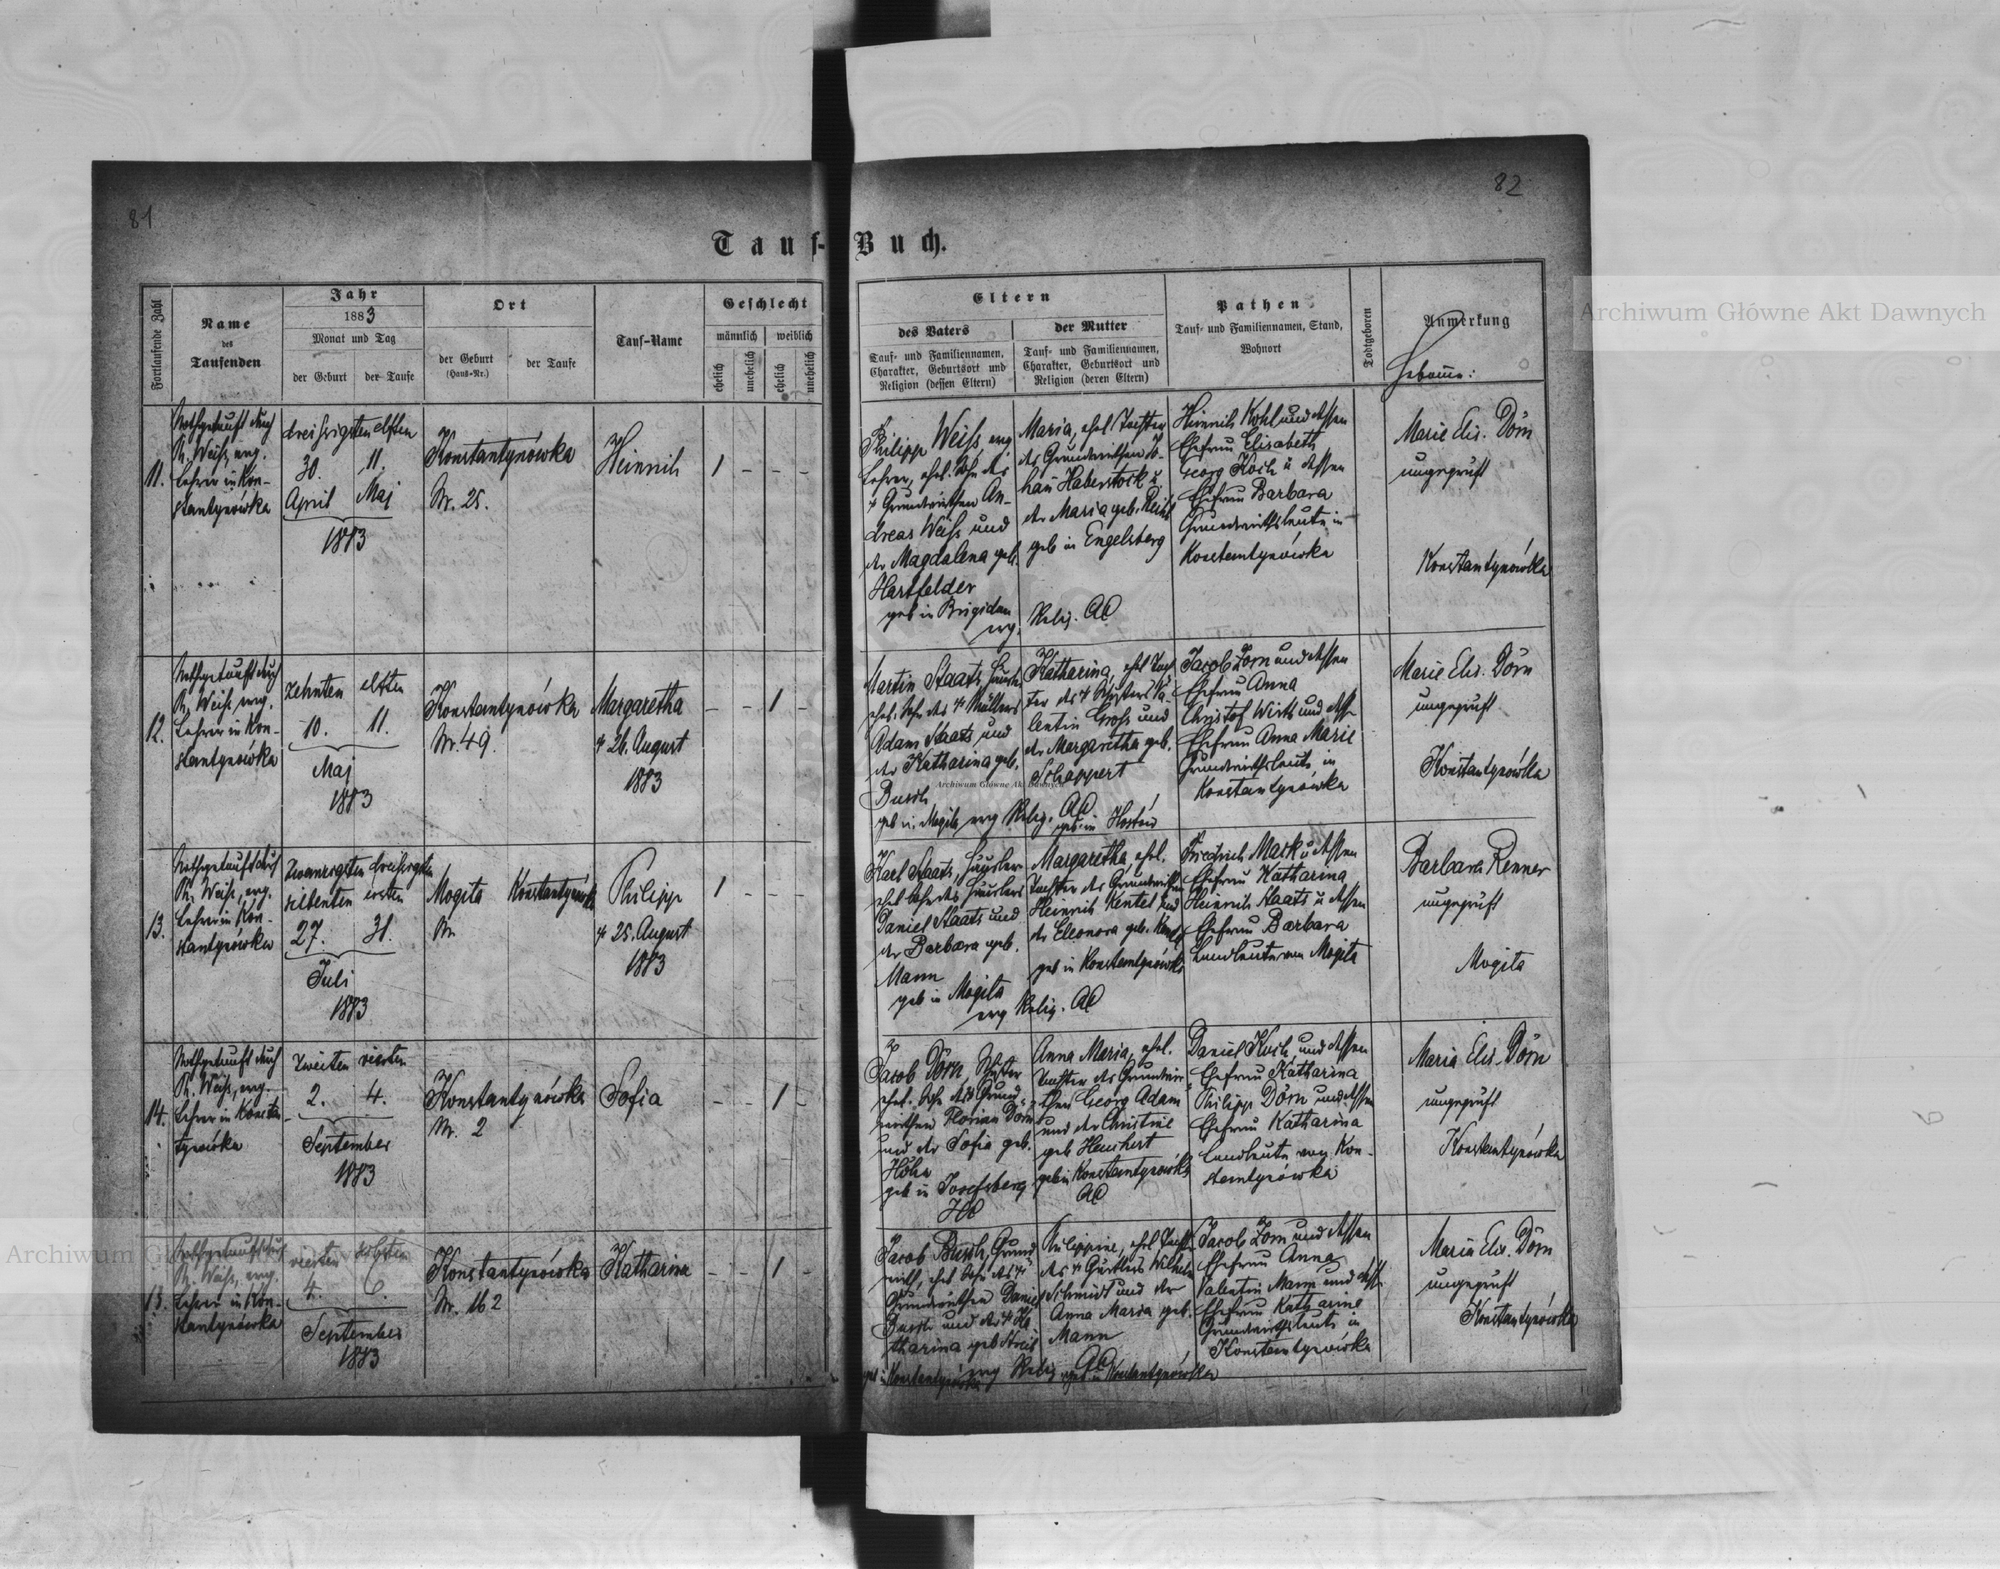 81
82
Tauf-Buch.
Fortlaufende Zahl
Name
des
Taufenden
Jahr
1883
Monat und Tag
der Geburt
der Taufe
Ort
der Geburt
(Haus-Nr.)
der Taufe
Tauf-Name
Geschlecht
männlich
weiblich
ehelich
unehelich
ehelich
unehelich
Eltern
des Vaters
Tauf- und Familiennamen,
Charakter, Geburtsort und
Religion (dessen Eltern)
der Mutter
Tauf- und Familiennamen,
Charakter, Geburtsort und
Religion (deren Eltern)
Pathen
Tauf- und Familiennamen, Stand,
Wohnort
Todtgeboren
Anmerkung
11.
Nothgetauft durch
Ph. Weiß, evg.
Lehrer in Kon-
stantynówka
dreißigsten elften
30. 11.
April Maj
1883
Konstantynówka
Nr. 25.
Heinrich
1 - - -
Philipp Weiß, evg.
Lehrer, ehel. Sohn des
Grundwirthen An-
dreas Weiß und
der Magdalena geb.
Hartfelder
geb in Brigidau
evg.
Maria, ehel Tochter
des Grundwirthen Jo-
hann Haberstock u
der Maria geb.
geb in Engelsberg
Relig. AC
Heinrich Kohl und dessen
Ehefrau Elisabeth
Georg Koch u dessen
Ehefrau Barbara
Grundwirthsleute in
Konstantynówka
Marie Elis. Dörn
ungeprüft
Konstantynówka
12.
Nothgetauft durch
Ph. Weiß, evg.
Lehrer in Kon-
stantynówka
zehnten elften
10. 11.
Maj
1883
Konstantynówka
Nr. 49.
Margaretha
26. August
1883
- - 1 -
Martin Staats,
ehel. Sohn des Müllers
Adam Staats und
der Katharina geb.
Busch
Katharina, ehel Toch
ter des Va-
lentin Groß und
der Margaretha geb.
Schappert
evg Relig. AC
Archiwum Główne Akt Dawnych
Jacob Zorn und dessen
Ehefrau Anna
Christof Wirth und dess
Ehefrau Anna Marie
Grundwirthsleute in
Konstantynówka
Marie Elis. Dörn
ungeprüft
Konstantynówka
13.
Nothgetauft durch
Ph. Weiß, evg.
Lehrer in Kon-
stantynówka
zwanzigsten dreißigsten
siebenten ersten
27. 31.
Juli
1883
Mogita Konstantynówk
Nr.
Philipp
25. August
1883
1 - - -
Karl Staats, Häusler
ehel Sohn des Häuslers
Daniel Staats und
der Barbara geb.
Mann
geb in Mogita
Margaretha, ehel.
Tochter des Grundwirthen
Heinrich Kentel und
der Eleonora geb.
geb in Konstantynówka
evg Relig. AC
Friedrich Mark u dessen
Ehefrau Katharina
Heinrich Staats u dessen
Ehefrau Barbara
Landleute von Mogita
Barbara Renner
ungeprüft
Mogita
14.
Nothgetauft durch
Ph. Weiß, evg.
Lehrer in Konstan-
tynówka
zweiten vierten
2. 4.
September
1883
Konstantynówka
Nr. 2
Sofia
- - 1 -
Jacob Dörn,
ehel. Sohn des Grund-
wirthen Florian Dörn
und der Sofia geb.
Höhn
geb in Josefsberg
HC
Anna Maria, ehel.
Tochter des Grundwir-
then Georg Adam
und der Christine
geb
geb in Konstantynówka
AC
Daniel Koch und dessen
Ehefrau Katharina
Philipp Dörn und dessen
Ehefrau Katharina
Landleute von Kon-
stantynówka
Maria Elis. Dörn
ungeprüft
Konstantynówka
15.
Nothgetauft durch
Ph. Weiß, evg.
Lehrer in Kon-
stantynówka
vierten sechsten
4. 6.
September
1883
Konstantynówka
Nr. 162
Katharina
- - 1 -
Jacob Busch, Grund
wirth, ehel Sohn des
Grundwirthen Daniel
Busch und der Ka
tharina geb
geb in Konstantynówka
Philippine, ehel Tocht
des Wilhelm
Schmidt und der
Anna Maria geb.
Mann
evg Relig. AC
geb in Konstantynówka
Jacob Zorn und dessen
Ehefrau Anna
Valentin Mann und dess
Ehefrau Katharine
Grundwirthsleute in
Konstantynówka
Maria Elis. Dörn
ungeprüft
Konstantynówka
Archiwum Główne Akt Dawnych